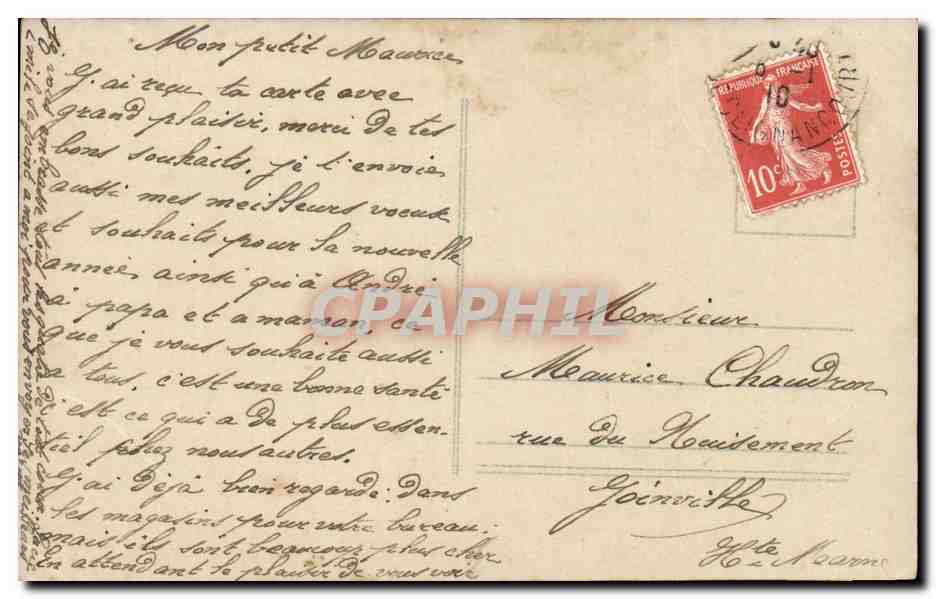 Mon petit Maurice
J'ai reçu ta carte avec
grand plaisir, merci de tes
bons souhaits. je t'envoie
aussi mes meilleurs voeux
et souhaits pour la nouvelle
année ainsi qu'à André
à papa et a maman, ce
que je vous souhaite aussi
a tous, c'est une bonne santé
c'est ce qui a de plus essen-
tiel pour nous autres.
J'ai déjà bien regardé dans
les magasins pour votre bureau.
mais ils sont beaucoup plus cher
En attendant le plaisir de vous voir
Je vous embrasse tous
Emile se joint a moi pour vous envoyer ses meilleurs
Monsieur
Maurice Chaudron
rue du Nuisement
Joinville
Hte Marne
REPUBLIQUE FRANÇAISE
10c
POSTES
10
CPAPHIL